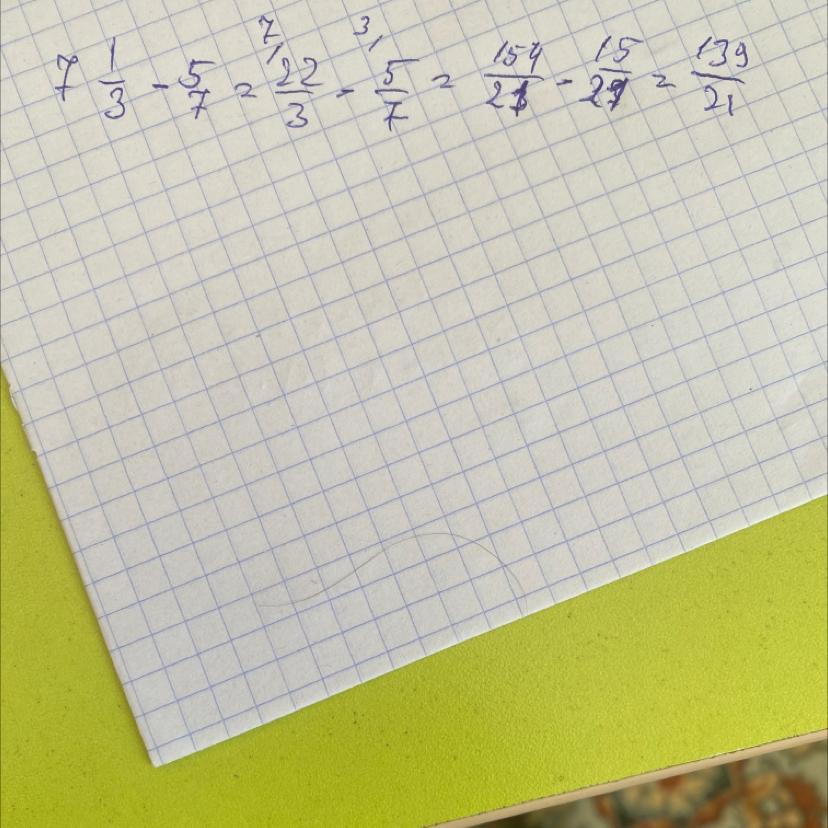 7 1/3 - 5/7 = 22/3 7, - 5/7 3, = 154/21 - 15/21 = 139/21